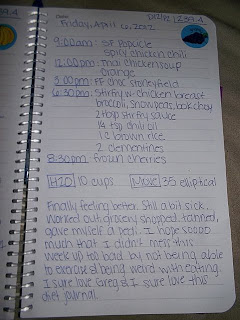 Date:
Friday, April 6, 2012
9:00am: SF Popsicle
Spicy chicken chili
12:00pm: Thai chicken soup
Orange
3:00pm: FF Choc Stoneyfield
6:30pm: Stirfry w/ chicken breast
broccoli, snowpeas, bok choy
2 tbsp stirfry sauce
1/4 tsp chili oil
1 C brown rice
2 clementines
8:30pm: frozen cherries
H2O 10 cups Move 35 elliptical
Finally feeling better. Still a bit sick.
Worked out, grocery shopped, tanned,
gave myself a pedi. I hope soooo
much that I didn't mess this
week up too bad by not being able
to exercise & being weird with eating.
I sure love Greg & I sure love this
diet journal.